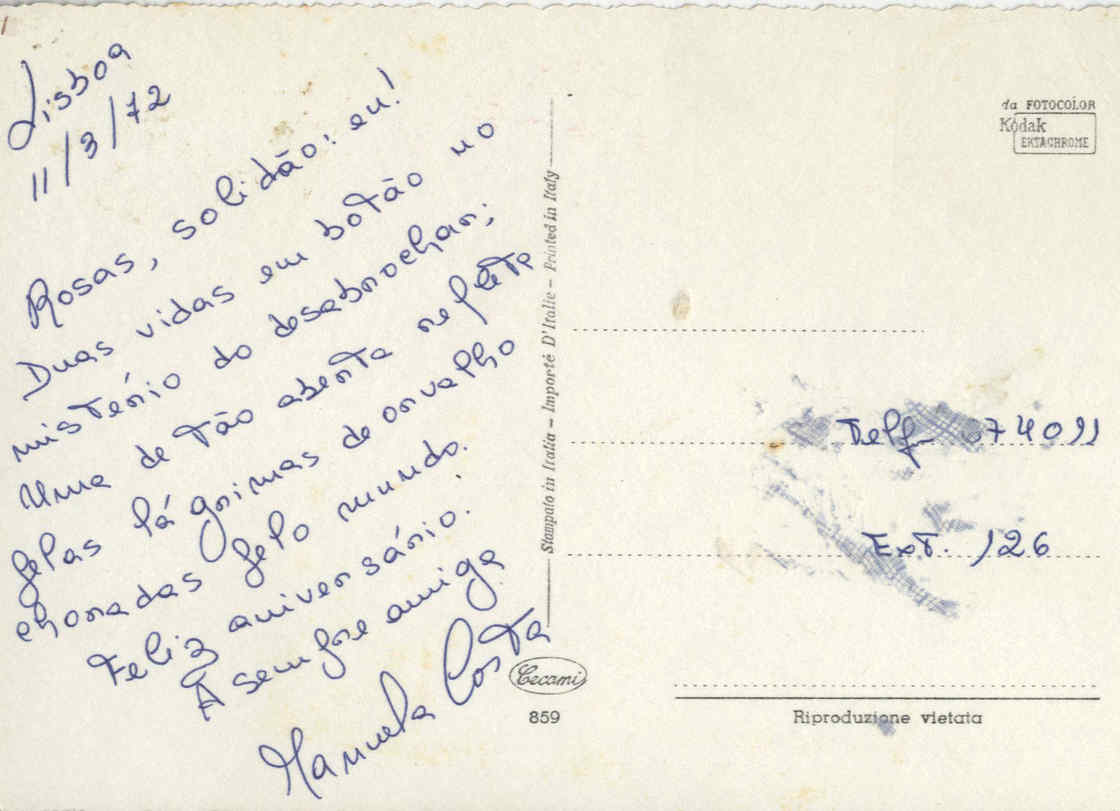 Lisboa
11/3/72
Rosas, solidão: eu!
Duas vidas em botão no
mistério do desabrochar;
Uma de tão aberta repleta
pelas lágrimas de orvalho
choradas pelo mundo.
Feliz aniversário.
A sempre amiga
Manuela Costa
Stampato in Italia - Importé D'Italie - Printed in Italy
Cecami
859
da FOTOCOLOR
Kodak
EKTACHROME
Telf. 074011
Ext. 126
Riproduzione vietata